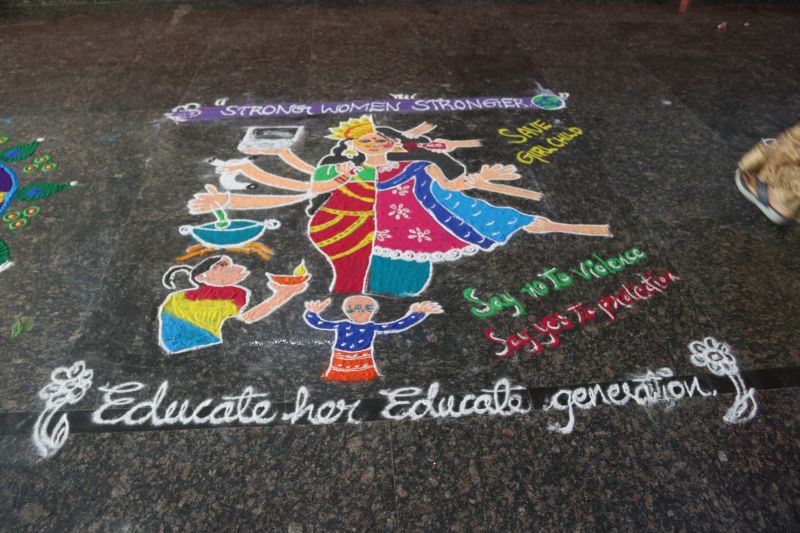 "STRONG WOMEN STRONGER"
SAVE
GIRL CHILD
SAVE
Say no to violence
Say yes to protection
Educate her Educate generation.